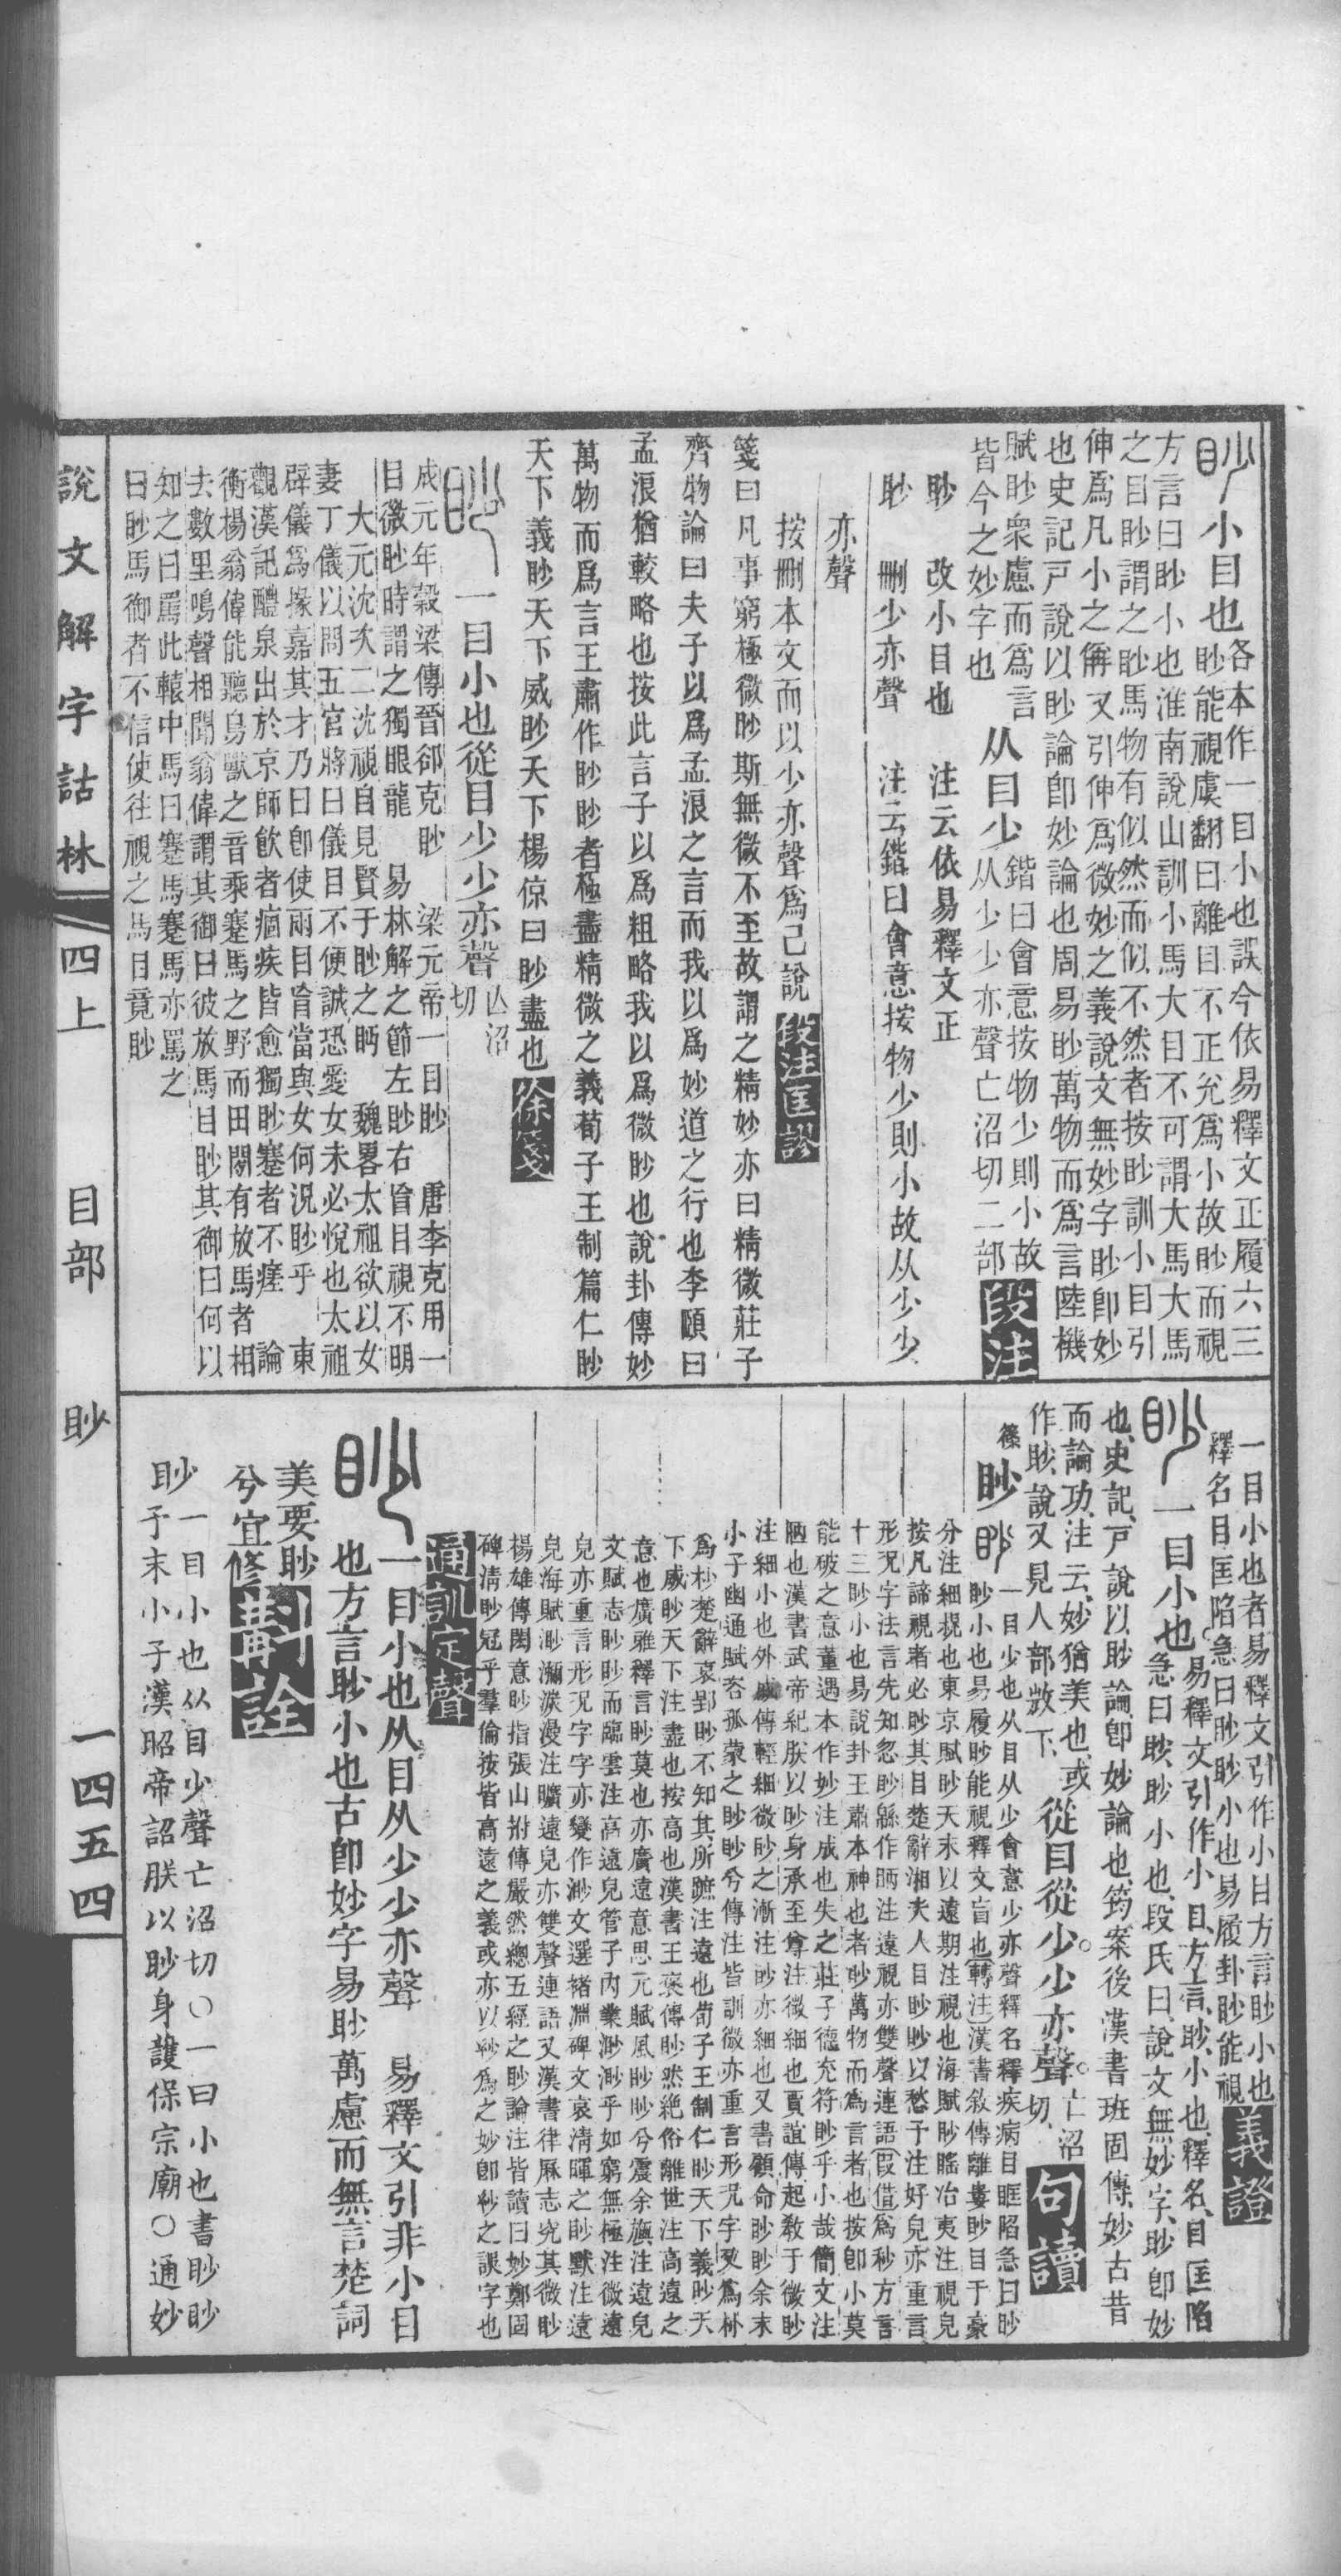 小目也各本作一目小也誤今依易釋文正履六三
眇能視虞翻曰離目不正兌爲小故眇而視
方言曰眇小也淮南說山訓小馬大目不可謂大馬大馬
之目眇謂之眇馬物有似然而似不然者按眇訓小目引
伸爲凡小之偁又引伸爲微妙之義說文無妙字眇卽妙
也史記戶說以眇論卽妙論也周易眇萬物而爲言陸機
賦眇衆慮而爲言
皆今之妙字也
从目少
鍇曰會意按物少則小故
从少少亦聲亡沼切二部
段注
眇 改小目也 注云依易釋文正
眇 刪少亦聲 注云鍇曰會意按物少則小故从少少
亦聲
按刪本文而以少亦聲爲己說
段注匡謬
箋曰凡事窮極微眇斯無微不至故謂之精妙亦曰精微莊子
齊物論曰夫子以爲孟浪之言而我以爲妙道之行也李頤曰
孟浪猶較略也按此言子以爲粗略我以爲微眇也說卦傳妙
萬物而爲言王肅作眇眇者極盡精微之義荀子王制篇仁眇
天下義眇天下威眇天下楊倞曰眇盡也
徐箋
一目小也從目少少亦聲
亾沼
切
成元年穀梁傳晉郤克眇 梁元帝一目眇 唐李克用一
目微眇時謂之獨眼龍 易林解之節左眇右盲目視不明
大元沈次二沈視自見賢于眇之眄 魏畧太祖欲以女
妻丁儀以問五官將曰儀目不便誠恐愛女未必悅也太祖
辟儀爲掾嘉其才乃曰卽使兩目盲當與女何況眇乎 東
觀漢記醴泉出於京師飲者痼疾皆愈獨眇蹇者不瘥 論
衡楊翁偉能聽鳥獸之音乘蹇馬之野而田間有放馬者相
去數里鳴聲相聞翁偉謂其御曰彼放馬目眇其御曰何以
知之曰罵此轅中馬曰蹇馬蹇馬亦罵之
曰眇馬御者不信使往視之馬目竟眇
一目小也者易釋文引作小目方言眇小也
釋名目匡陷急曰眇眇小也易履卦眇能視
義證
一目小也
易釋文引作小目方言眇小也釋名目匡陷
急曰眇眇小也段氏曰說文無妙字眇卽妙
也史記戶說以眇論卽妙論也筠案後漢書班固傳妙古昔
而論功注云妙猶美也或
作眇說又見人部敚下
從目從少少亦聲
亡沼
切
句讀
篠
眇
一目少也从目从少會意少亦聲釋名釋疾病目眶陷急曰眇
眇小也易履眇能視釋文盲也轉注漢書敘傳離婁眇目于豪
分注細視也東京賦眇天末以遠期注視也海賦眇䁘冶夷注視皃
按凡諦視者必眇其目楚辭湘夫人目眇眇以愁予注好皃亦重言
形況字法言先知忽眇緜作昞注遠視亦雙聲連語叚借爲秒方言
十三眇小也易說卦王肅本神也者眇萬物而爲言者也按卽小莫
能破之意董遇本作妙注成也失之莊子德充符眇乎小哉簡文注
陋也漢書武帝紀朕以眇身承至尊注微細也賈誼傳起敎于微眇
注細小也外戚傳輕細微眇之漸注眇亦細也又書顧命眇眇余末
小子幽通賦咨孤蒙之眇眇兮傳注皆訓微亦重言形況字又爲杪
爲杪楚辭哀郢眇不知其所蹠注遠也荀子王制仁眇天下義眇天
下威眇天下注盡也按高也漢書王襃傳眇然絕俗離世注高遠之
意也廣雅釋言眇莫也亦廣遠意思元賦風眇眇兮震余旟注遠皃
文賦志眇眇而臨雲注高遠皃管子內業渺渺乎如窮無極注微遠
皃亦重言形況字字亦變作渺文選褚淵碑文哀清暉之眇默注遠
皃海賦渺瀰湠漫注曠遠皃亦雙聲連語又漢書律厤志究其微眇
楊雄傳閎意眇指張山拊傳嚴然總五經之眇論注皆讀曰妙鄭固
碑清眇冠乎羣倫按皆高遠之義或亦以紗爲之妙卽紗之誤字也
通訓定聲
一目小也从目从少少亦聲 易釋文引非小目
也方言眇小也古卽妙字易眇萬慮而無言楚詞
美要眇
兮宜修
斠詮
眇一目小也从目少聲亡沼切○一曰小也書眇眇
予末小子漢昭帝詔朕以眇身護保宗廟○通妙
說文解字詁林 四上 目部 眇 一四五四